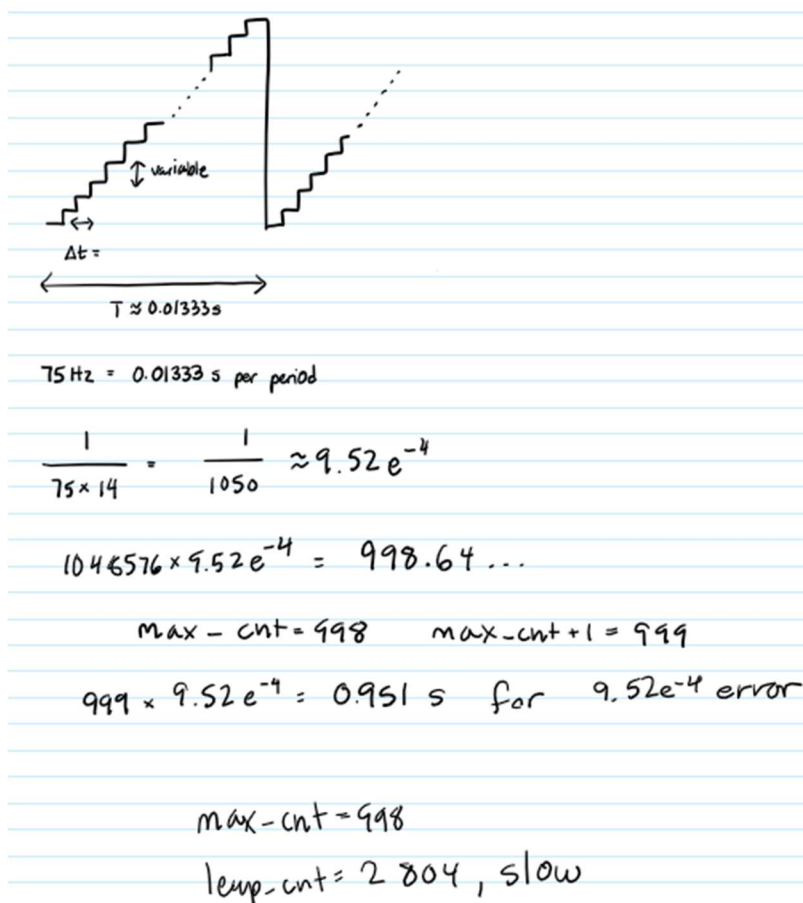 variable
Δt =
T ≈ 0.01333s
75 Hz = 0.01333 s per period
1/(75 × 14) = 1/1050 ≈ 9.52 e^-4
1048576 × 9.52 e^-4 = 998.64 ...
max - cnt = 998 max-cnt + 1 = 999
999 × 9.52 e^-4 = 0.951 s for 9.52e^-4 error
max-cnt = 998
cnt = 2 804, slow